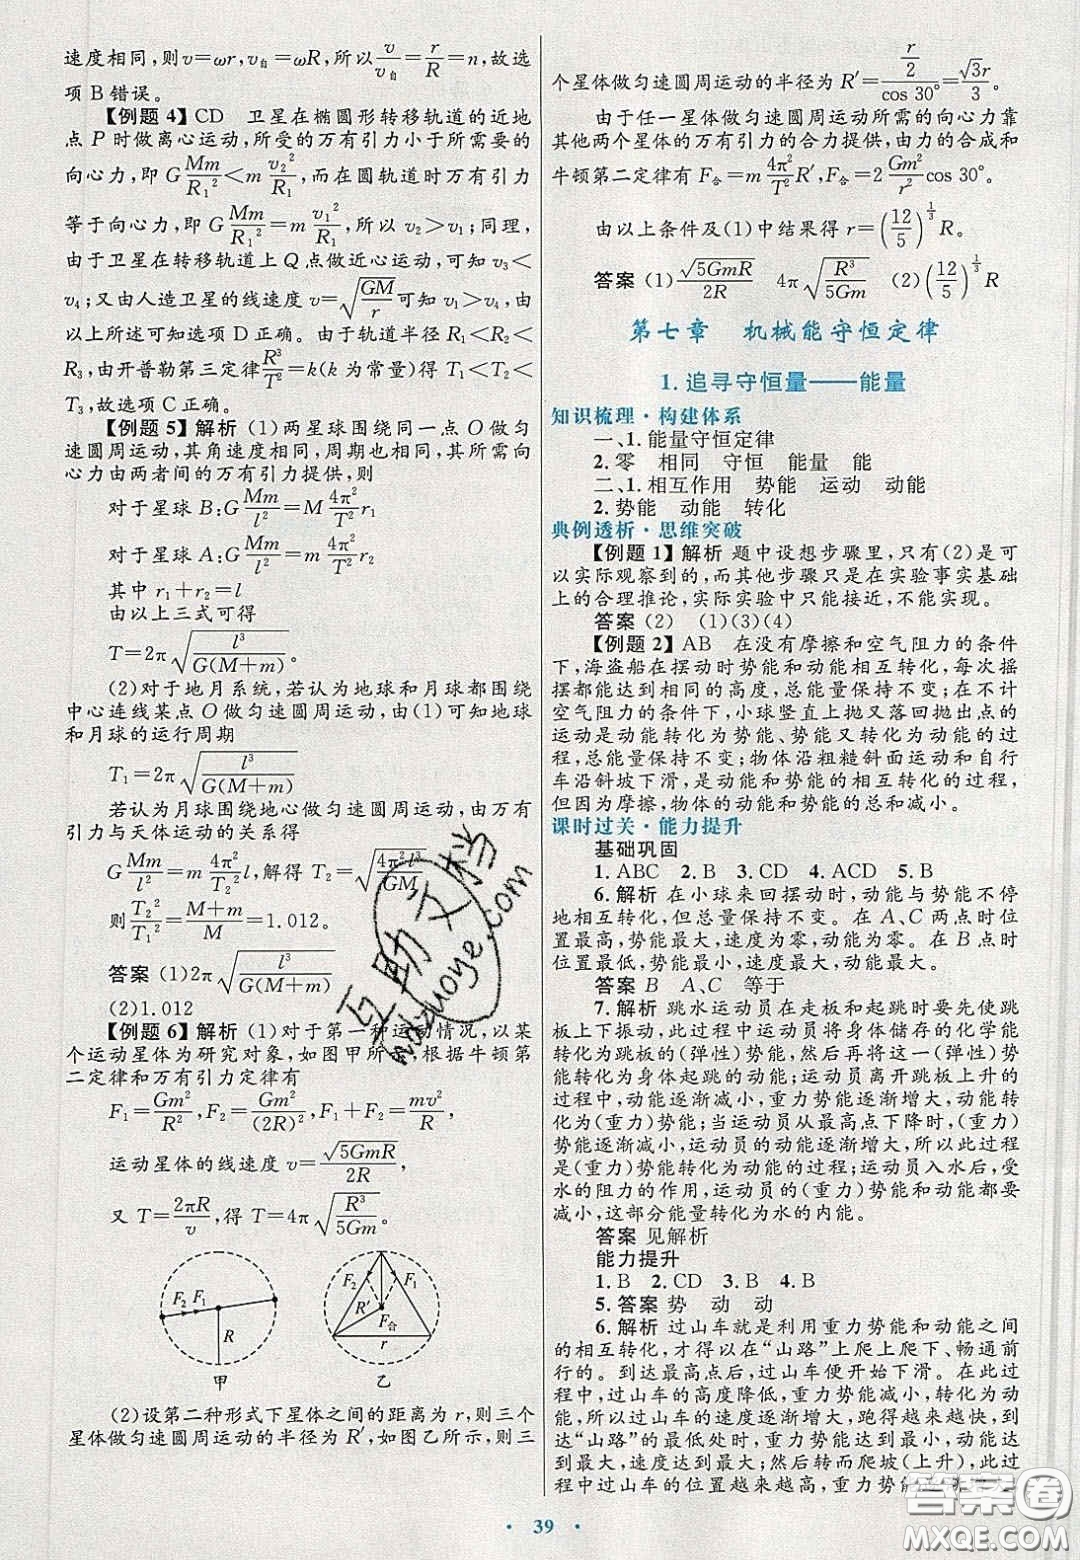 速度相同,则v=ωr,v自=ωR,所以v/v自=r/R=n,故选
项B错误。
【例题4】CD 卫星在椭圆形转移轨道的近地
点P时做离心运动,所受的万有引力小于所需要的
向心力,即G Mm/R₁²<m v₂²/R₁,而在圆轨道时万有引力
等于向心力,即G Mm/R₁²=m v₁²/R₁,所以v₂>v₁;同理,
由于卫星在转移轨道上Q点做近心运动,可知v₃<
v₄;又由人造卫星的线速度v=√(GM/r)可知v₁>v₄,由
以上所述可知选项D正确。由于轨道半径R₁<R₂<
R₃,由开普勒第三定律R³/T²=k(k为常量)得T₁<T₂<
T₃,故选项C正确。
【例题5】解析 (1)两星球围绕同一点O做匀
速圆周运动,其角速度相同,周期也相同,其所需向
心力由两者间的万有引力提供,则
对于星球B:G Mm/l²=M 4π²/T² r₁
对于星球A:G Mm/l²=m 4π²/T² r₂
其中r₁+r₂=l
由以上三式可得
T=2π√(l³/G(M+m))
(2)对于地月系统,若认为地球和月球都围绕
中心连线某点O做匀速圆周运动,由(1)可知地球
和月球的运行周期
T₁=2π√(l³/G(M+m))
若认为月球围绕地心做匀速圆周运动,由万有
引力与天体运动的关系得
G Mm/l²=m 4π²/T₂² l,解得T₂=√(4π²l³/GM)
则T₂²/T₁²=(M+m)/M=1.012。
答案 (1)2π√(l³/G(M+m))
(2)1.012
【例题6】解析 (1)对于第一种运动情况,以某
个运动星体为研究对象,如图甲所 根据牛顿第
二定律和万有引力定律有
F₁=Gm²/R²,F₂=Gm²/(2R)²,F₁+F₂=mv²/R,
运动星体的线速度v=√(5GmR)/2R,
又T=2πR/v,得T=4π√(R³/5Gm)。
F₂ F₁ R 甲
F₂ F₁ R′ F合 r 乙
(2)设第二种形式下星体之间的距离为r,则三个
星体做匀速圆周运动的半径为R′,如图乙所示,则三
个星体做匀速圆周运动的半径为R′=(r/2)/cos 30°=√3r/3。
由于任一星体做匀速圆周运动所需的向心力靠
其他两个星体的万有引力的合力提供,由力的合成和
牛顿第二定律有F合=m 4π²/T² R′,F合=2 Gm²/r² cos 30°。
由以上条件及(1)中结果得r=(12/5)^(1/3) R。
答案 (1)√(5GmR)/2R 4π√(R³/5Gm) (2)(12/5)^(1/3) R
第七章 机械能守恒定律
1.追寻守恒量——能量
知识梳理·构建体系
一、1.能量守恒定律
2.零 相同 守恒 能量 能
二、1.相互作用 势能 运动 动能
2.势能 动能 转化
典例透析·思维突破
【例题1】解析 题中设想步骤里,只有(2)是可
以实际观察到的,而其他步骤只是在实验事实基础
上的合理推论,实际实验中只能接近,不能实现。
答案 (2) (1)(3)(4)
【例题2】AB 在没有摩擦和空气阻力的条件
下,海盗船在摆动时势能和动能相互转化,每次摇
摆都能达到相同的高度,总能量保持不变;在不计
空气阻力的条件下,小球竖直上抛又落回抛出点的
运动是动能转化为势能、势能又转化为动能的过
程,总能量保持不变;物体沿粗糙斜面运动和自行
车沿斜坡下滑,是动能和势能的相互转化的过程,
但因为摩擦,物体的动能和势能的总和减小。
课时过关·能力提升
基础巩固
1.ABC 2.B 3.CD 4.ACD 5.B
6.解析 在小球来回摆动时,动能与势能不停
地相互转化,但总的能量保持不变。在A、C两点时位
置最高,势能最大,速度为零,动能为零。在B点时
位置最低,势能最小,速度最大,动能最大。
答案 B A、C 等于
7.解析 跳水运动员在走板和起跳时要先使跳
板上下振动,此过程中运动员将身体储存的化学能
转化为跳板的(弹性)势能,然后再将这一(弹性)势
能转化为身体起跳的动能;运动员离开跳板上升的
过程中,动能逐渐减小,重力势能逐渐增大,动能转化
为(重力)势能;当运动员从最高点下降时,(重力)
势能逐渐减小,运动员的动能逐渐增大,所以此过程
是(重力)势能转化为动能的过程;运动员入水后,受
水的阻力的作用,运动员的(重力)势能和动能都要
减小,这部分能量转化为水的内能。
答案 见解析
能力提升
1.B 2.CD 3.B 4.B
5.答案 势 动 动
6.解析 过山车就是利用重力势能和动能之间
的相互转化,才得以在“山路”上爬上爬下、畅通前
行的。到达最高点后,过山车便开始下滑。在此过
程中,过山车的高度降低,重力势能减小,转化为动
能,所以过山车的速度越来越大,跑得越来越快,到
达“山路”的最低处时,重力势能达到最小,动能达到
最大,速度达到最大;然后转而爬坡(上升),在此过
程中过山车的位置越来越高,重力势能
39
互助文档
hdzuoye.com
答案圈
MXQE.COM